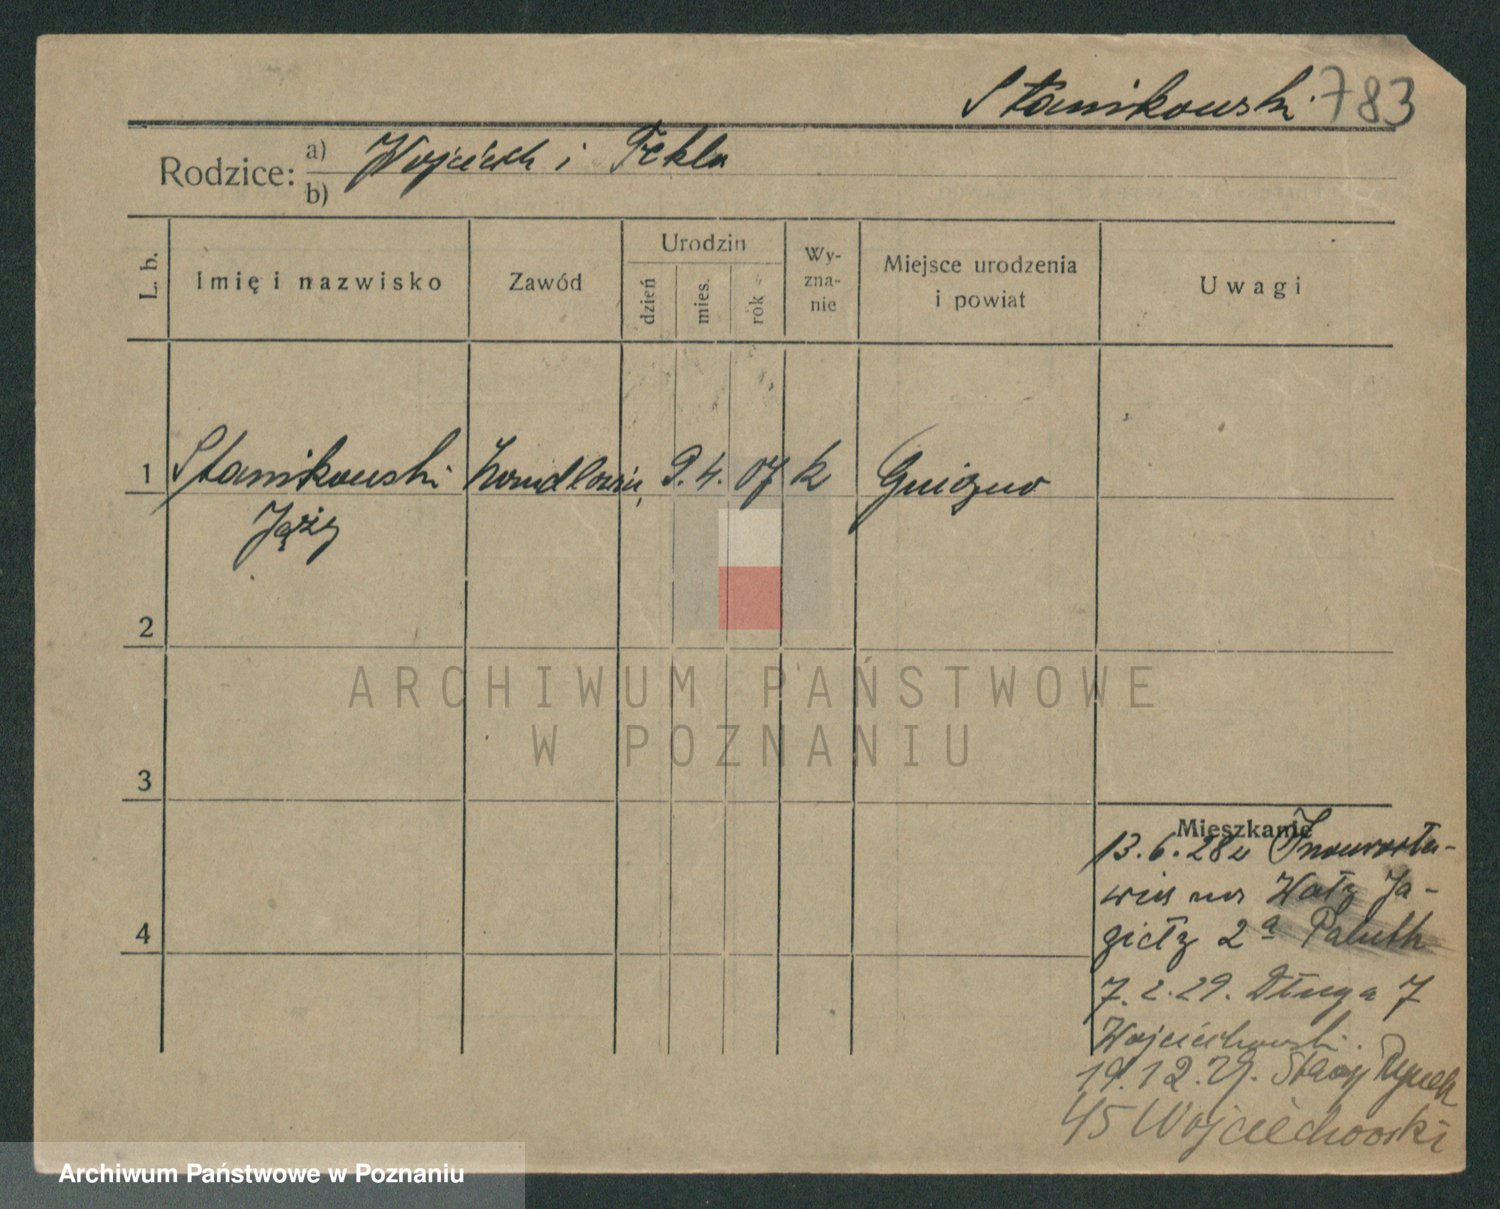 Stanikowski 783
Rodzice: a) Wojciech i Tekla
b)
L. b.
Imię i nazwisko
Zawód
Urodzin
dzień
mies.
rok
Wy-
zna-
nie
Miejsce urodzenia
i powiat
Uwagi
1 Stanikowski 9. 4. 07 k Gniezno
Jęży
2
3
4
Mieszkanie
13. 6. 28 z Inowrocła-
wia na Ja-
giełły 2a Paluch
7. 2. 29. Długa 7
Wojciechowski.
19. 12. 29. Stary Rynek
45 Wojciechowski
ARCHIWUM PAŃSTWOWE
W POZNANIU
Archiwum Państwowe w Poznaniu